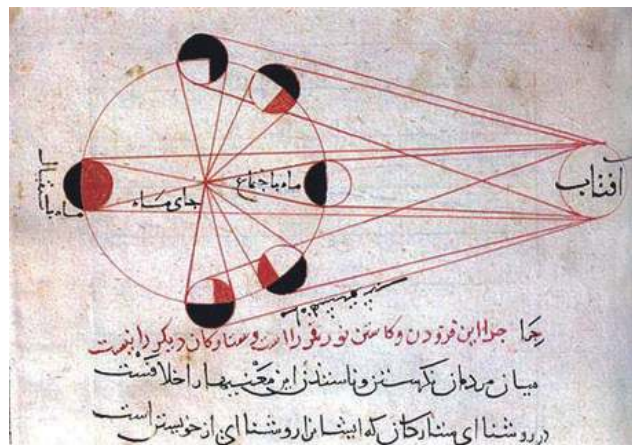 افتاب
ماه باجتماع
جای ماه
ماه باستقبال
چرا این فزودن وکاستن نور قمر را است وستارکان دیکر را نیست
میان مردمان این معنیها را خلافست
در روشنا ای ستارکان که ایشانرا روشنا ای از خویشتن است